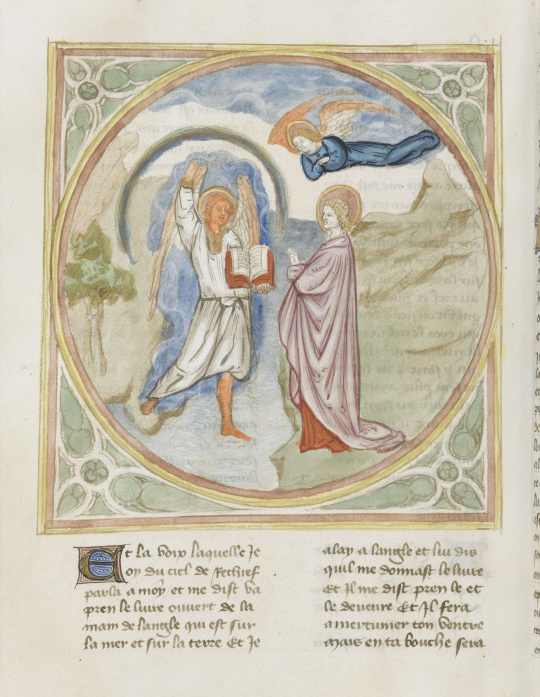 Et la voix laquelle Je
oy du ciel de Rechief
parla a moy et me dist va
pren le livre ouvert de la
main de langle qui est sur
la mer et sur la terre Et Je
alay a langle et luy dis
quil me donnast le livre
Et Il me dist pren le et
le deveure Et Il fera
amertumer ton ventre
Mais en ta bouche sera